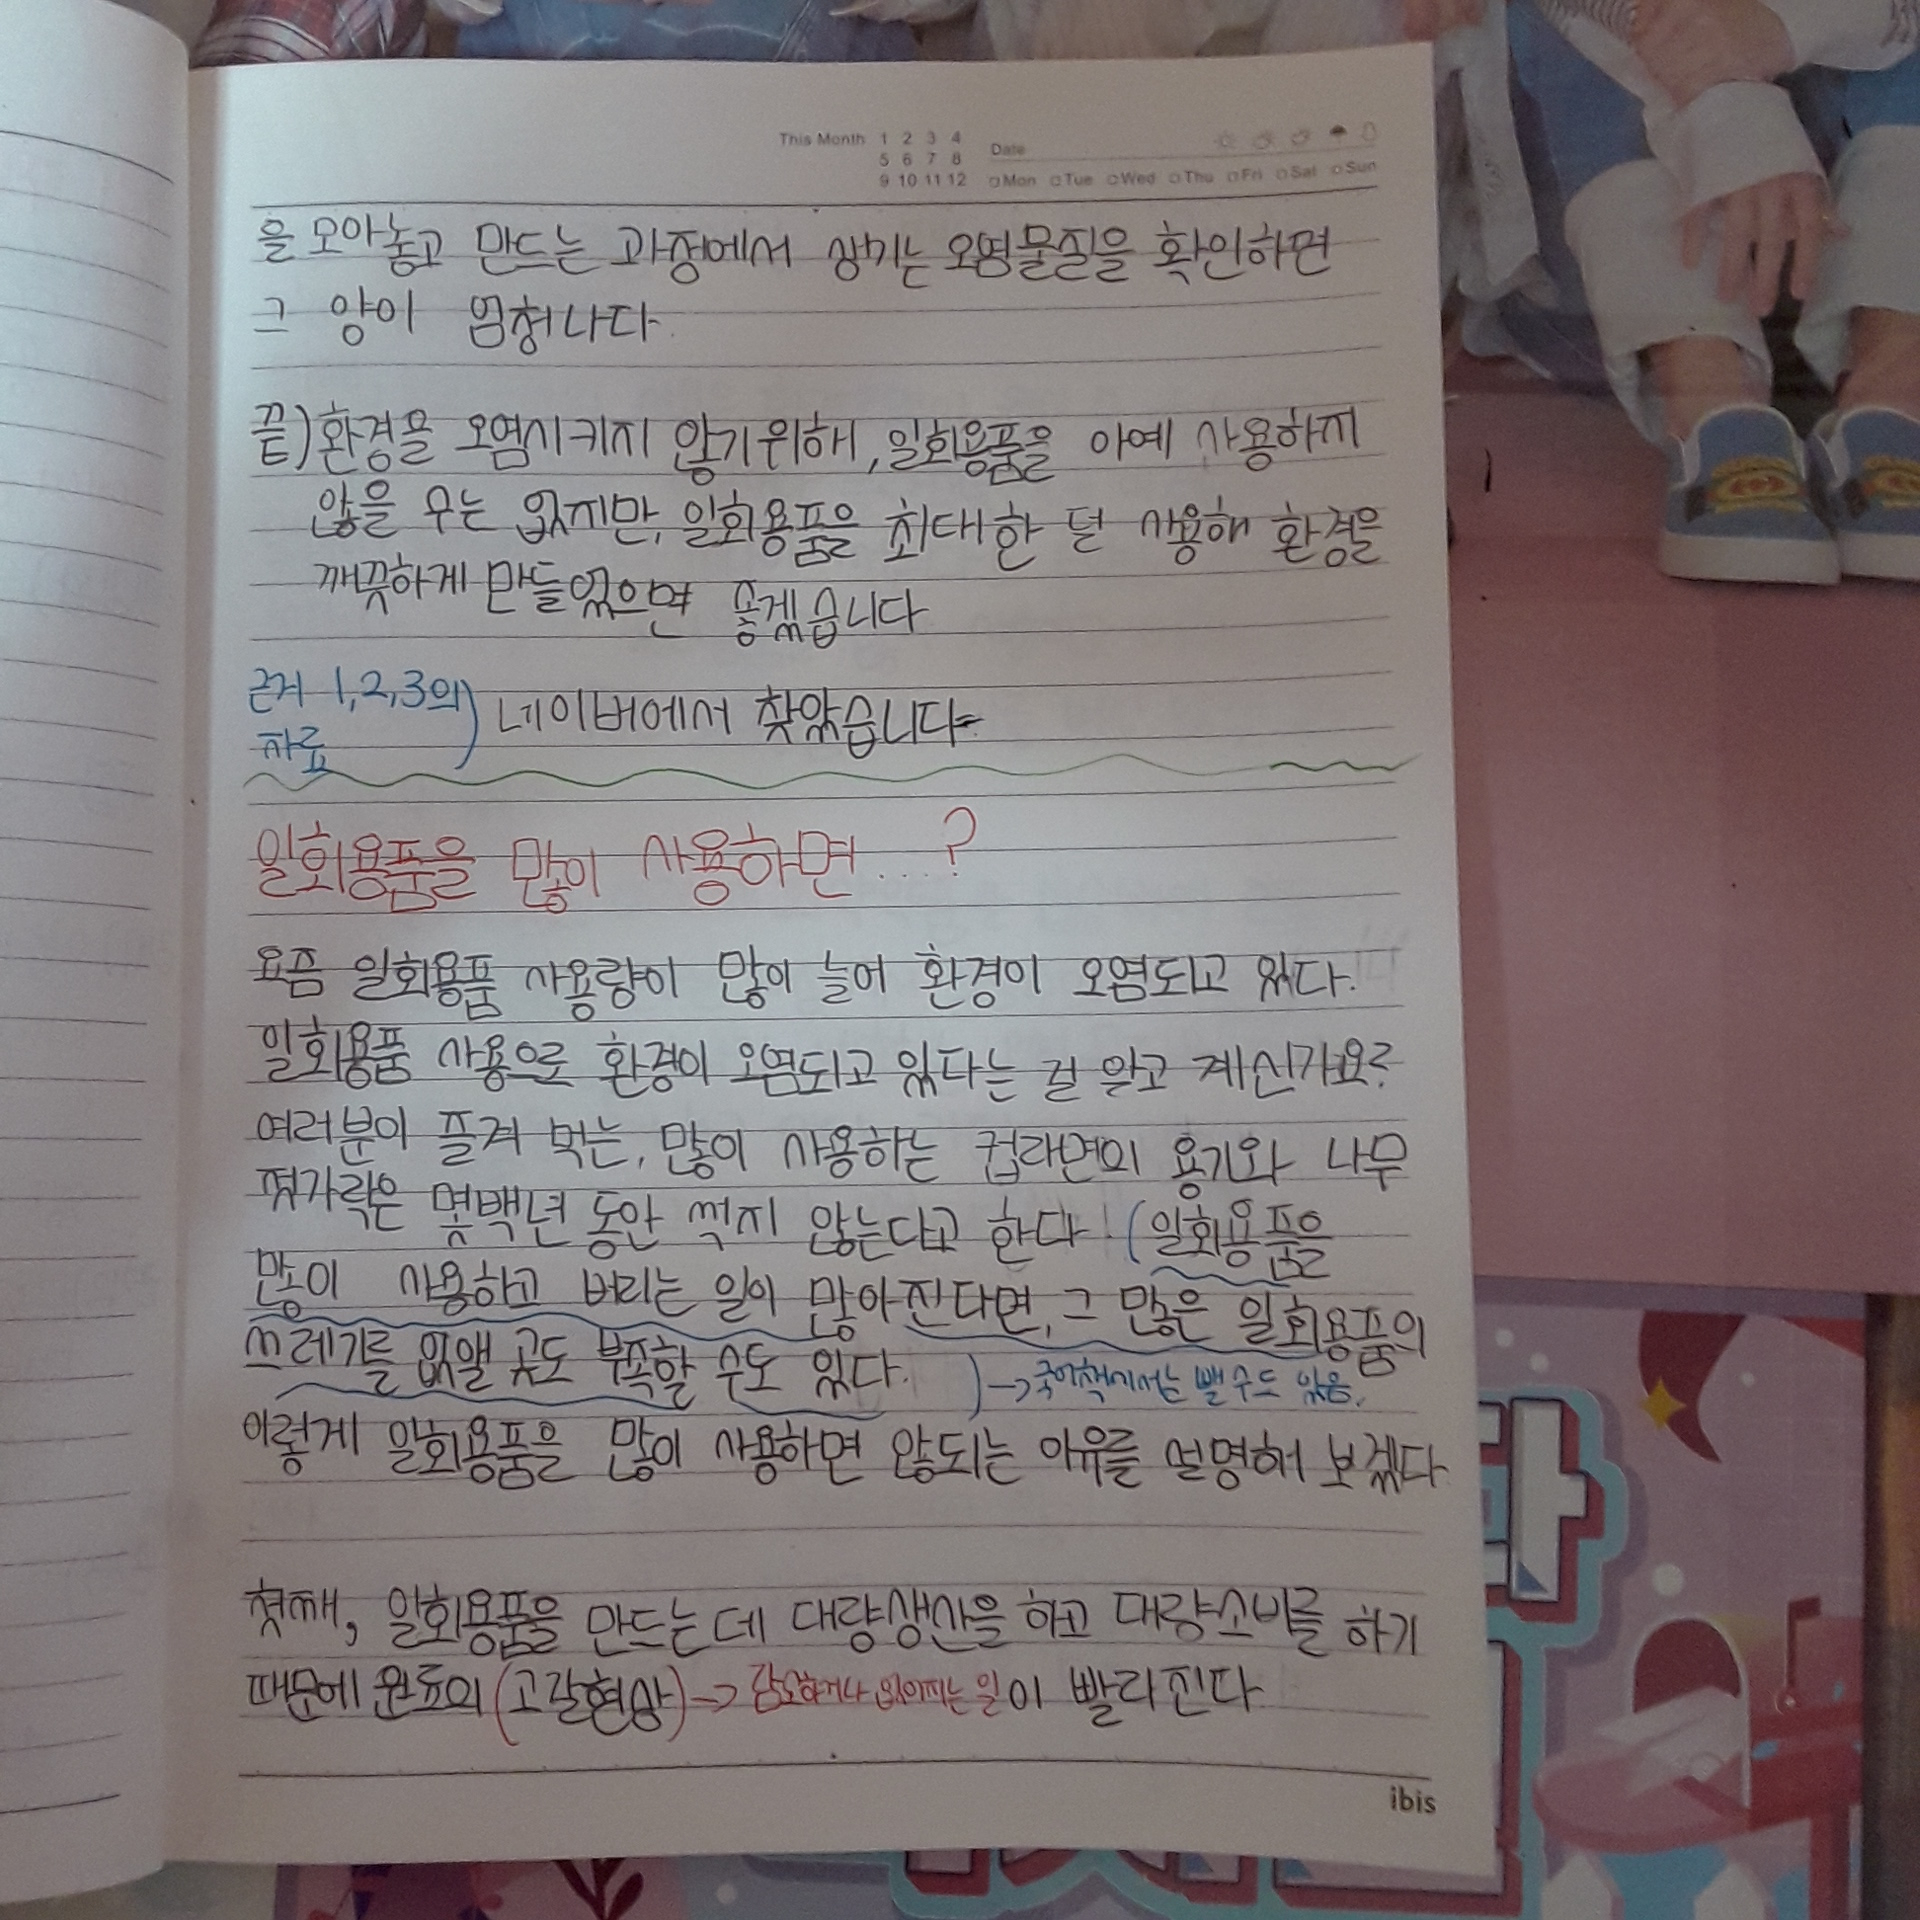 This Month 1 2 3 4
5 6 7 8
9 10 11 12
Date
Mon Tue Wed Thu Fri Sat Sun
을 모아놓고 만드는 과정에서 생기는 오염물질을 확인하면
그 양이 엄청나다.
끝) 환경을 오염시키지 않기위해, 일회용품을 아예 사용하지
않을 수는 없지만, 일회용품을 최대한 덜 사용해 환경을
깨끗하게 만들었으면 좋겠습니다
근거 1,2,3의 자료) 네이버에서 찾았습니다.
일회용품을 많이 사용하면....?
요즘 일회용품 사용량이 많이 늘어 환경이 오염되고 있다.
일회용품 사용으로 환경이 오염되고 있다는 걸 알고 계신가요?
여러분이 즐겨 먹는, 많이 사용하는 컵라면의 용기와 나무
젓가락은 몇백년 동안 썩지 않는다고 한다. (일회용품을
많이 사용하고 버리는 일이 많아진다면, 그 많은 일회용품의
쓰레기를 없앨 곳도 부족할 수도 있다. ) → 국어책에서는 뺄 수도 있음.
이렇게 일회용품을 많이 사용하면 않되는 이유를 설명해 보겠다
첫째, 일회용품을 만드는데 대량생산을 하고 대량소비를 하기
때문에 원료의 (고갈현상) → 감소하거나 없어지는 일이 빨라진다.
ibis